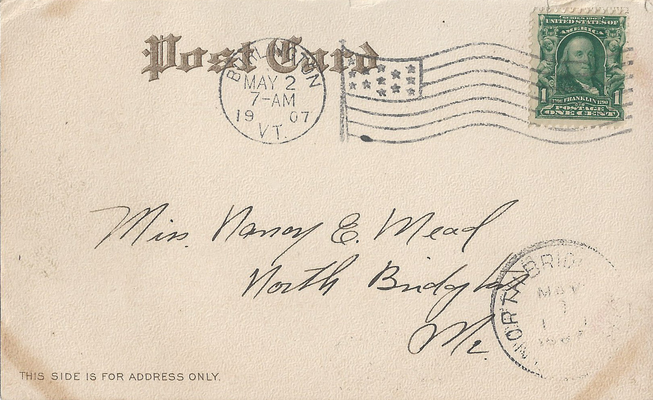 Post Card
BURLINGTON
MAY 2
7-AM
19 07
VT.
SERIES 1902
UNITED STATES OF
AMERICA
1 1706 FRANKLIN 1790 1
POSTAGE
ONE CENT
Miss. Nancy E. Mead
North Bridgton
Me.
NORTH BRID
MAY
THIS SIDE IS FOR ADDRESS ONLY.